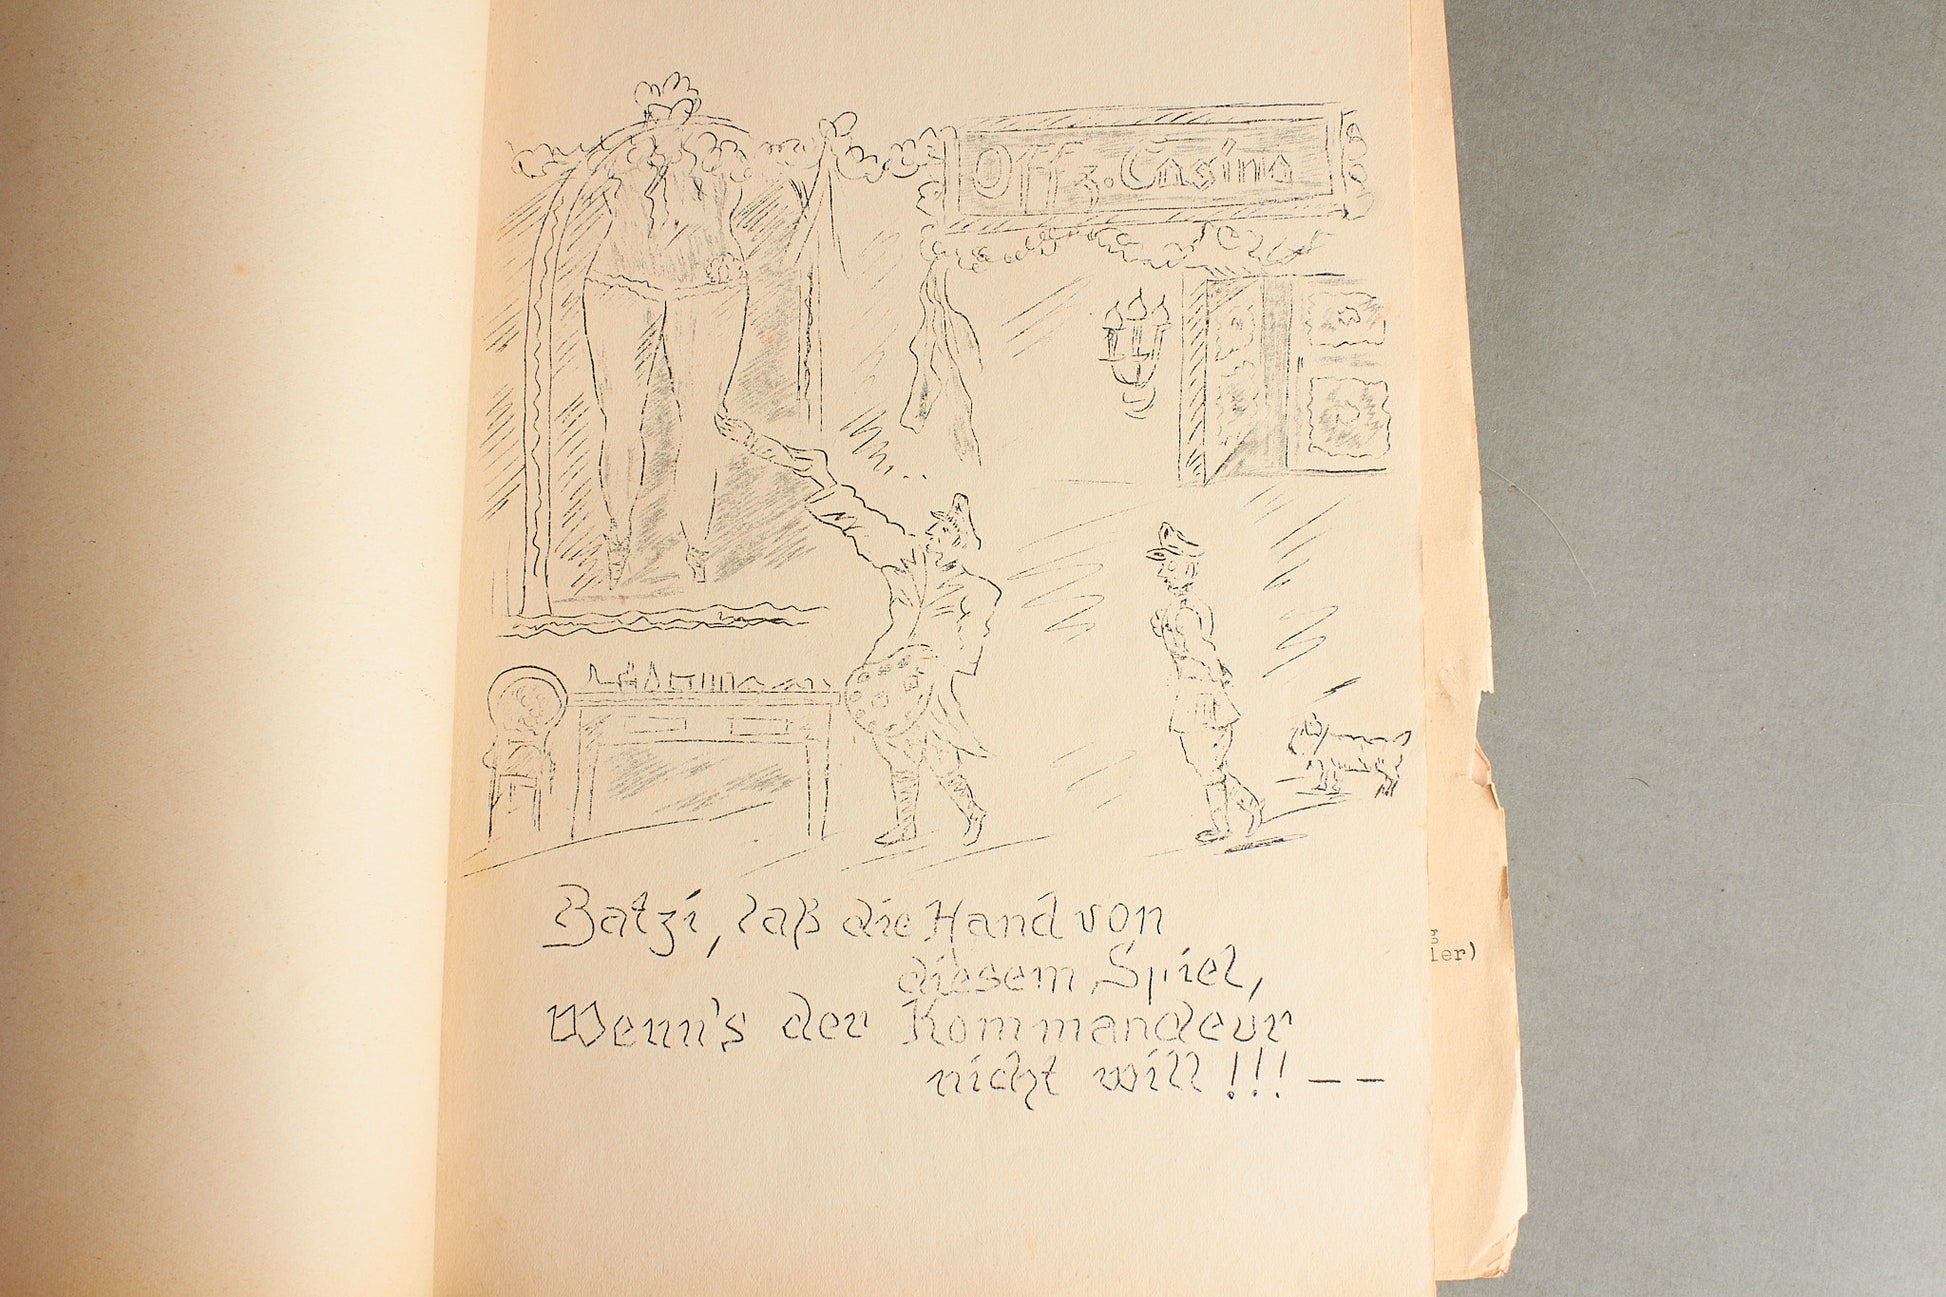 Offz. Casino
Batzi, laß die Hand von
diesem Spiel,
Wenn's der Kommandeur
nicht will!!! – –
ler)